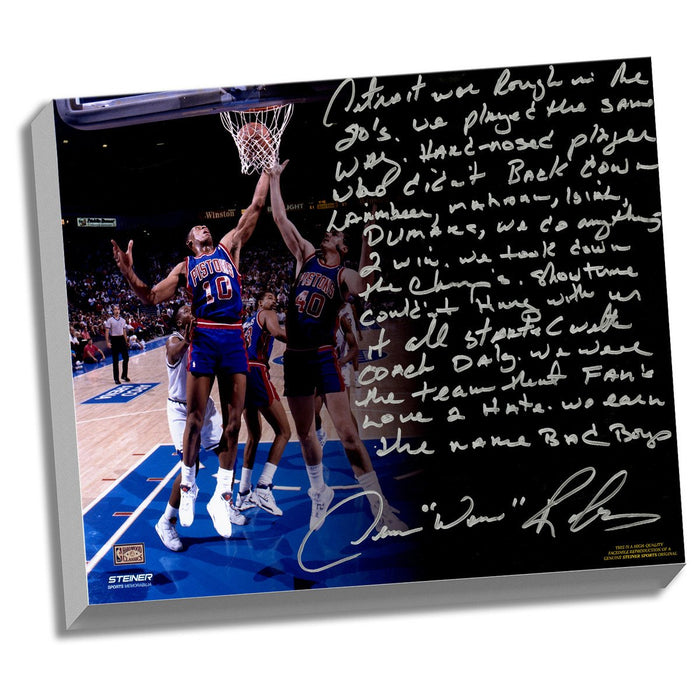 Detroit was Rough in the
80's. we played the same
way. HARD-nosed player
who didn't Back down
Laimbeer, mahorn, Isiah,
DUMARS, we do anything
2 win. we took down
the Champ's. Showtime
couldn't Hang with us
it all started with
COACH DAly. We were
the team that FAN's
Love 2 Hate. we earn
the name BAD Boys
"Worm"
Winston
PISTONS
10
PISTONS
40
HARDWOOD CLASSICS
STEINER
SPORTS MEMORABILIA
THIS IS A HIGH-QUALITY
FACSIMILE REPRODUCTION OF A
GENUINE STEINER SPORTS ORIGINAL